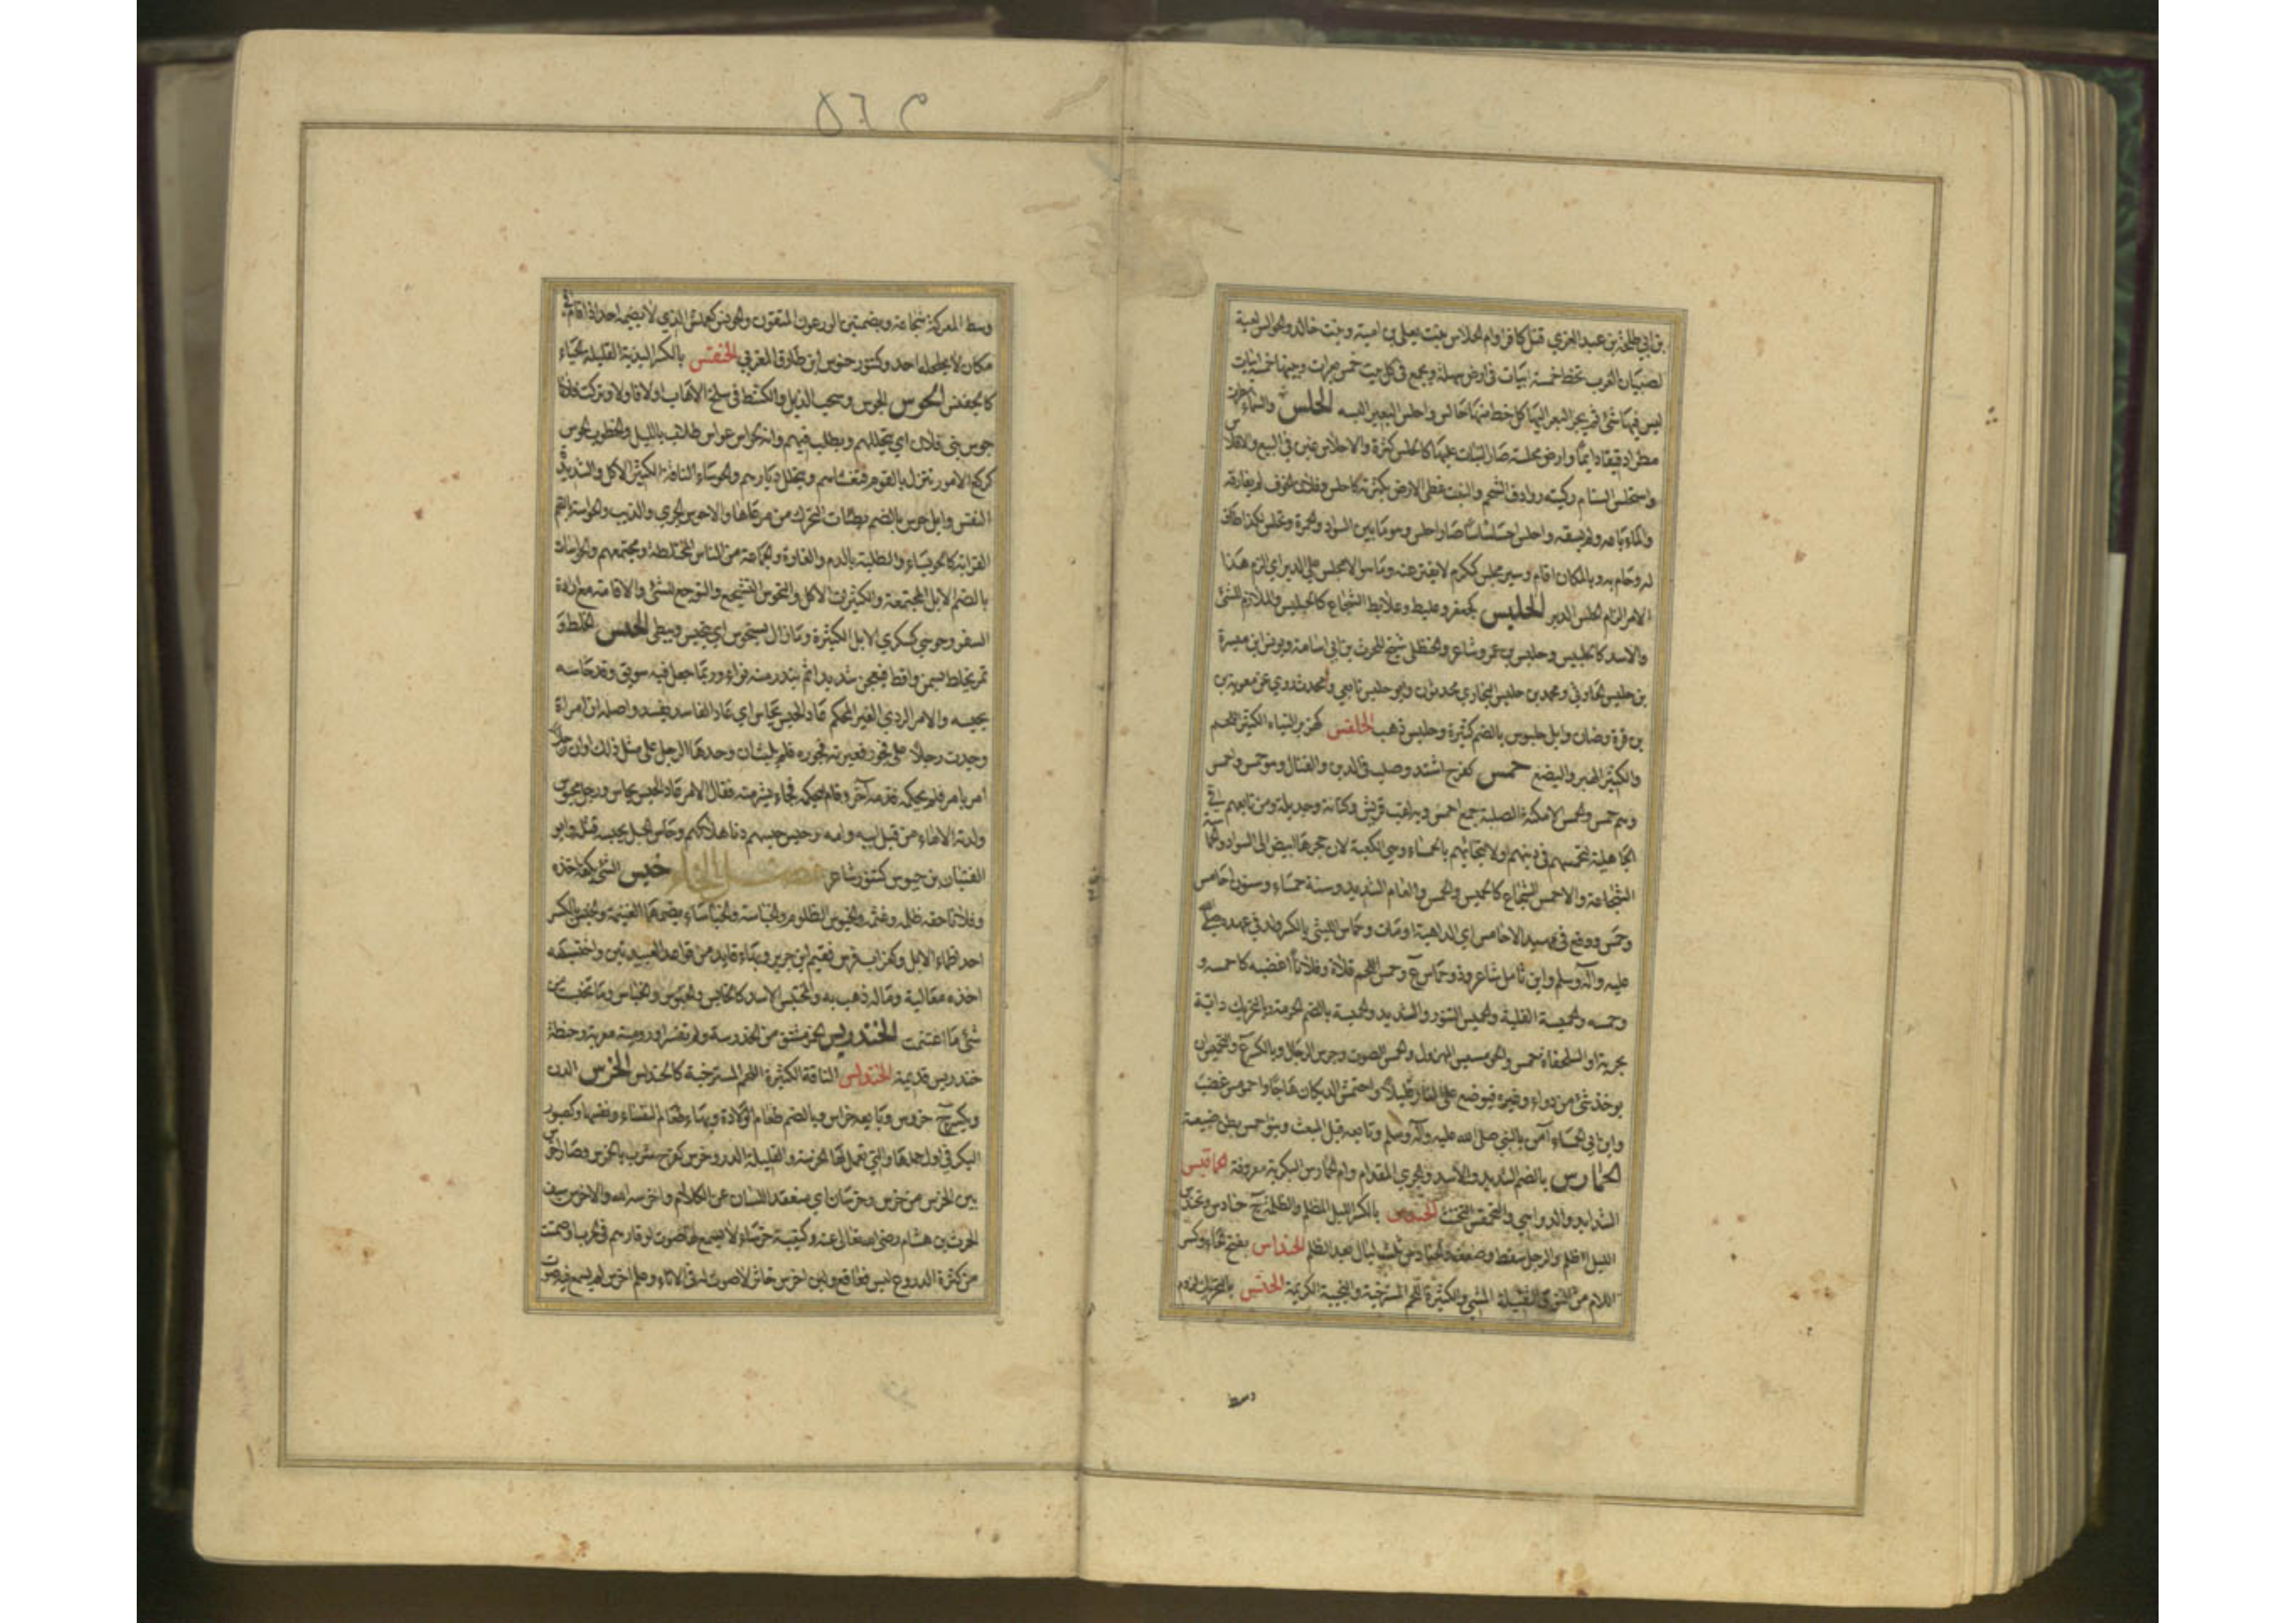 بن ابي طلحة بن عبد العزي قتل كافرا وام الحلاس بنت يعلى بن امية وبنت خالد والحوالس لعبة
لصبيان العرب تخط خمسة ابيات في ارض سهلة ويجمع في كل بيت خمس بعرات وبينها خمسة ابيات
ليس فيها شئ ثم يجر البعر اليها كل خط منها حالس واحلس البعير البسه الحلس والسماء
مطرا دقيقا دايما وارض محلسة صار النبات عليها كالحلس كثرة والاحلاس غبن في البيع والافلاس
واستحلس السنام ركبته روادف الشحم والنبت غطى الارض بكثرته كاحلس وفلان الخوف لم يفارقه
والماء باعه ولم يسقه واحلس احلساسا صار احلس وهو ما بين السواد والحمرة وتحلس لكذا طاف
له وحام به وبالمكان اقام وسير محلس كمكرم لا يفتر عنه وما هو الا محلس على الدبر اي الزم هذا
الامر الزام الحلس الدبر الحلبس كجعفر وعلبط وعلابط الشجاع كالحبلبس والملازم للشئ
والاسد كالحلبيس وحلبس بن عمرو شاعر والحنظلي شيخ للحرث بن ابي اسامة ويونس بن ميسرة
بن حلبس الحاوثي ومحمد بن حلبس البخاري محدثون وابو حلبس تابعي والمحدث روي عن معوية بن
بن قرة وضان وابل حلبوس بالضم كثيرة وحلبس ذهب الحلفس كهزبر الشاء الكثير اللحم
والكثير الهبر والبضع حمس كفرح اشتد وصلب في الدين والقتال وهو حمس واحمس
وهم حمس والحمس الامكنة الصلبة جمع احمس وبه لقب قريش وكنانة وجديلة ومن تابعهم في
الجاهلية لتحمسهم في دينهم او لالتجائهم بالحمساء وهي الكعبة لان حجرها ابيض الى السواد والحماسة
الشجاعة والاحمس الشجاع كالحميس والحمس والعام الشديد وسنة حمساء وسنون احامس
وحمس ووقع في هند الاحامس اي الداهية او مات وحماس الليثي بالكسر ولد في عهده صلى الله
عليه وآله وسلم وابن ثامل شاعر وذو حماس ع وحمس اللحم قلاه وفلانا اغضبه كاحمسه و
وحمسه والحميسة القلية والحميس التنور والشديد والحمسة بالضم الحرمة وبالتحريك دابة
بحرية او السلحفاة حمس والحوميس المهزول والحمس الصوت وجرس الرجال وبالكسر ع والتحميس ان
يوخذ شئ من دواء وغيره فيوضع على النار قليلا واحتمس الديكان هاجا واحمومس غضب
وابن ابي الحمساء آمن بالنبي صلى الله عليه وآله وسلم وتابعه قبل المبعث وبنو حمس بطن ضبيعة
الحمارس بالضم الشديد والاسد والجري المقدام وام الحمارس البكرية معروفة الحماقيس
الشدايد والدواهي والتحمقس التخبث الحندس بالكسر الليل المظلم والظلمة ج حنادس وتحندس
الليل اظلم والرجل سقط وضعف والحنادس ثلث ليال بعد الظلم الحندلس بفتح الحاء وكسر
اللام من النوق الثقيلة المشي والكثيرة اللحم المسترخية والنجيبة الكريمة الحنس بالتحريك لزوم
وسط
وسط المعركة شجاعة وبضمتين الورعون المتقون والحونس كعملس الذي لا يضيمه احد اذا قام في
مكان لا يحلحله احد وكتنور حنوس ابن طارق المغربي الحنفس بالكسر البذية القليلة الحياء
كالحفنس الحوس الجوس وسحب الذيل والكشط في سلخ الاهاب اولا فاولا وتركت فلانا
يحوس بني فلان اي يتخللهم ويطلب فيهم وانه لحواس عواس طلاب بالليل والخطوب الحوس
كركع الامور تنزل بالقوم فتغشاهم وتتخلل ديارهم والحوساء الناقة الكثيرة الاكل والشديدة
النفس وابل حوس بالضم بطيئات التحرك من مرعاها والاحوس الجري والذيب والحواسة بالضم
القرابة كالحويساء والطلبة بالدم والغارة والجماعة من الناس المختلطة ومجتمعهم والحواسات
بالضم الابل المجتمعة والكثيرات الاكل والتحوس التشجع والتوجع للشئ والاقامة مع ارادة
السفر وحوسى كسكري الابل الكثيرة وما زال يستحوس اي يتحبس ويبطى الحيس الخلط و
تمر يخلط بسمن واقط فيعجن شديدا ثم يندر منه نواه وربما جعل فيه سويق وقد حاسه
يحيسه والامر الردي الغير المحكم عاد الحيس يحاس اي عاد الفاسد يفسد واصله ان امراة
وجدت رجلا على فجور فعيرته فجوره فلم يلبث ان وجدها الرجل على مثل ذلك او ان رجلا
امر بامر فلم يحكمه فذمه آخر وقام ليحكمه فجاء بشر منه فقال الامر عاد الحيس يحاس ورجل محيوس
ولدته الاماء من قبل ابيه وامه وحيس حيسهم دنا هلاكهم وحاس الحبل يحيسه فتله وابو
الفتيان بن حيوس كتنور شاعر فصل الخاء خبس الشئ بكفه اخذه
وفلانا حقه ظلمه وغشمه والخبوس الظلوم والخباسة والخباساء بضمهما الغنيمة والخبس بالكسر
احد اظماء الابل وكغراب فرس فقيم ابن جرير وبهاء قايد من قواد العبيديين واختبسه
اخذه مغالبة وماله ذهب به والمختبس الاسد كالخابس والخبوس والخباس وما تخبست من
شئ ما اغتنمت الخندريس الخمر مشتق من الخدرسة ولم تفسر او رومية معربة وحنطة
خندريس قديمة الخندلس الناقة الكثيرة اللحم المسترخية كالحندلس الخرس الدن
ويكسر ج خروس وبايعه خراس وبالضم طعام الولادة وبهاء طعام النفساء نفسها وكصبور
البكر في اول حملها والتي يعمل لها الخرسة والقليلة الدر وخرس كفرح شرب بالخرس وصار اخرس
بين الخرس من خرس وخرسان اي منعقد اللسان عن الكلام واخرسه الله والاخرس سيف
الحرث بن هشام رضي الله تعالى عنه وكتيبة خرساء لا يسمع لها صوت لوقارهم في الحرب او صمتت
من كثرة الدروع ليس لها قعاقع ولبن اخرس خاثر لا صوت له في الاناء وعلم اخرس لم يسمع فيه صوت